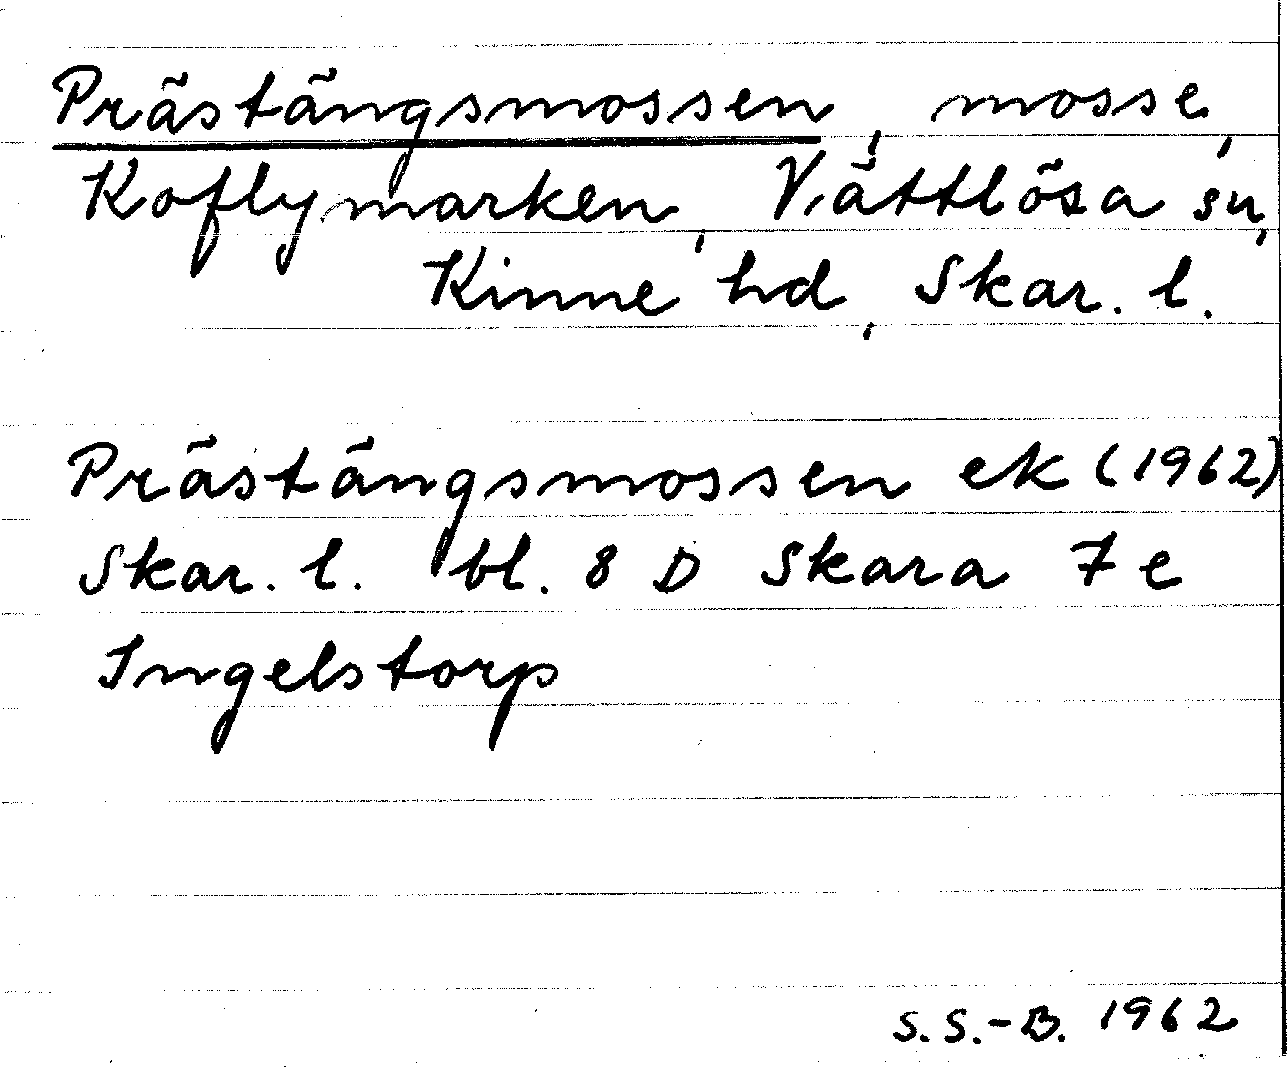 Prästängsmossen, mosse,
Koflymarken, Vättlösa sn,
Kinne hd, Skar. l.
Prästängsmossen ek (1962)
Skar. l. bl. 8 D Skara 7 e
Ingelstorp
S. S.-B. 1962